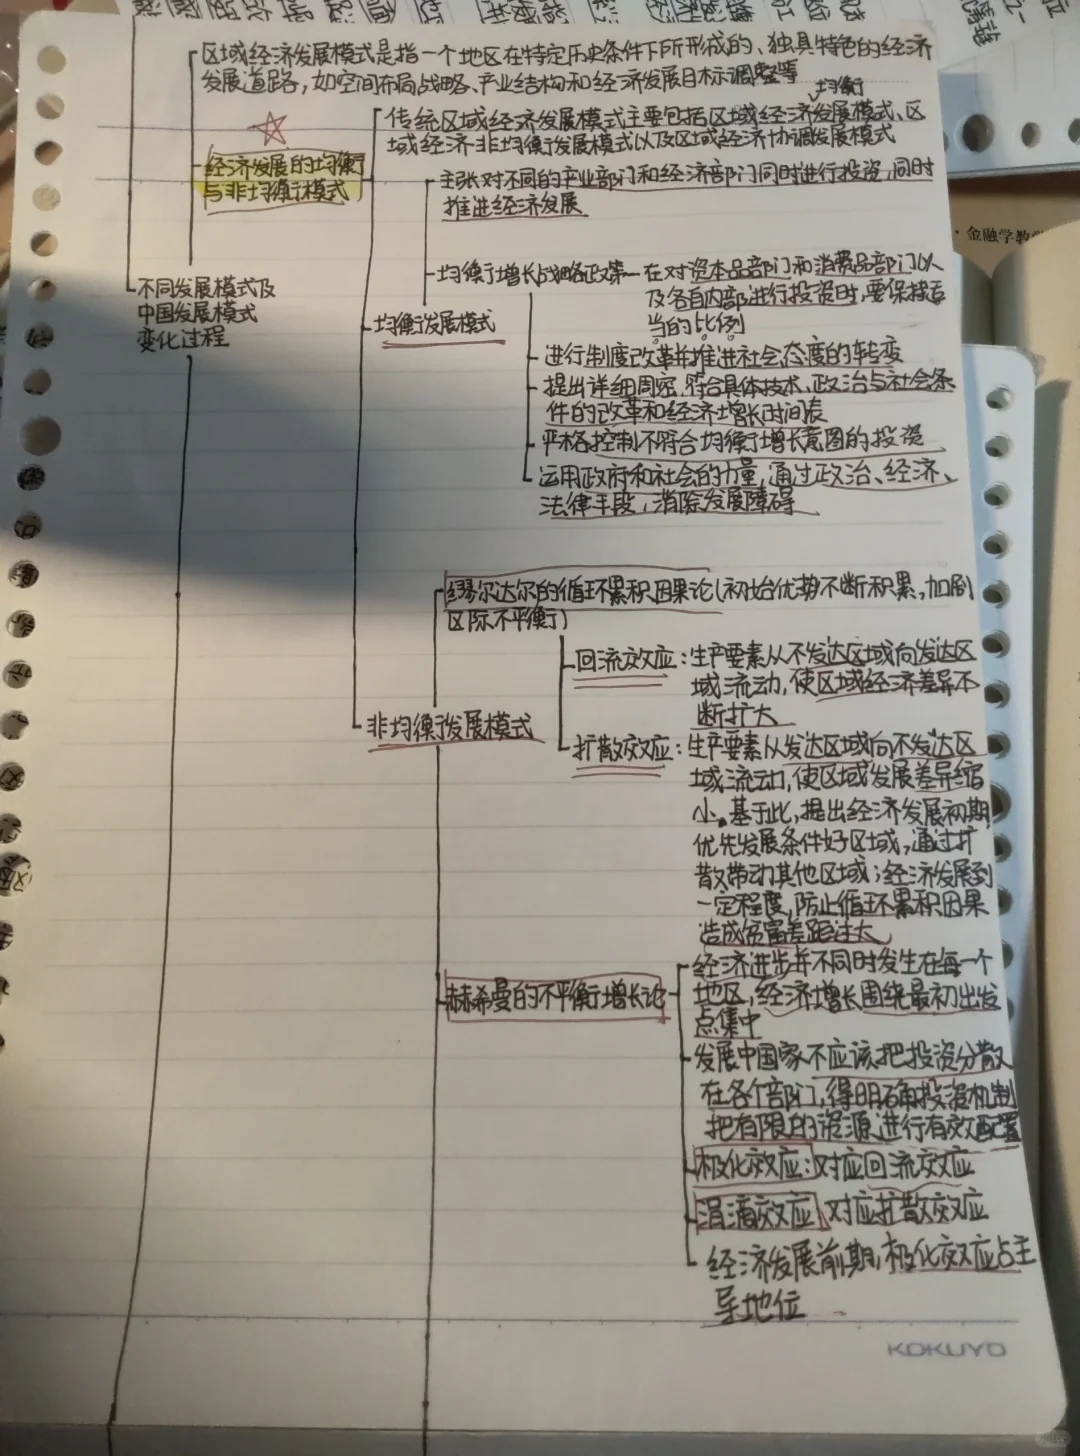 区域经济发展模式是指一个地区在特定历史条件下所形成的、独具特色的经济
发展道路，如空间布局战略、产业结构和经济发展目标调整等
均衡
传统区域经济发展模式主要包括区域经济发展模式、区
域经济非均衡发展模式以及区域经济协调发展模式
经济发展的均衡
与非均衡模式
主张对不同的产业部门和经济部门同时进行投资，同时
推进经济发展
·金融学教
不同发展模式及
中国发展模式
变化过程
均衡增长战略政策
在对资本品部门和消费品部门以
及各自内部进行投资时，要保持适
当的比例
均衡发展模式
进行制度改革并推进社会态度的转变
提出详细周密，符合具体技术、政治与社会条
件的改革和经济增长时间表
严格控制不符合均衡增长意图的投资
运用政府和社会的力量，通过政治、经济、
法律手段，消除发展障碍
缪尔达尔的循环累积因果论（初始优势不断积累，加剧
区际不平衡）
回流效应：生产要素从不发达区域向发达区
域流动，使区域经济差异不
断扩大
非均衡发展模式
扩散效应：生产要素从发达区域向不发达区
域流动，使区域发展差异缩
小。基于此，提出经济发展初期
优先发展条件好区域，通过扩
散带动其他区域；经济发展到
一定程度，防止循环累积因果
造成贫富差距过大
赫希曼的不平衡增长论
经济进步并不同时发生在每一个
地区，经济增长围绕最初出发
点集中
发展中国家不应该把投资分散
在各个部门，得明确投资机制
把有限的资源进行有效配置
极化效应：对应回流效应
涓滴效应，对应扩散效应
经济发展前期，极化效应占主
导地位
KOKUYO